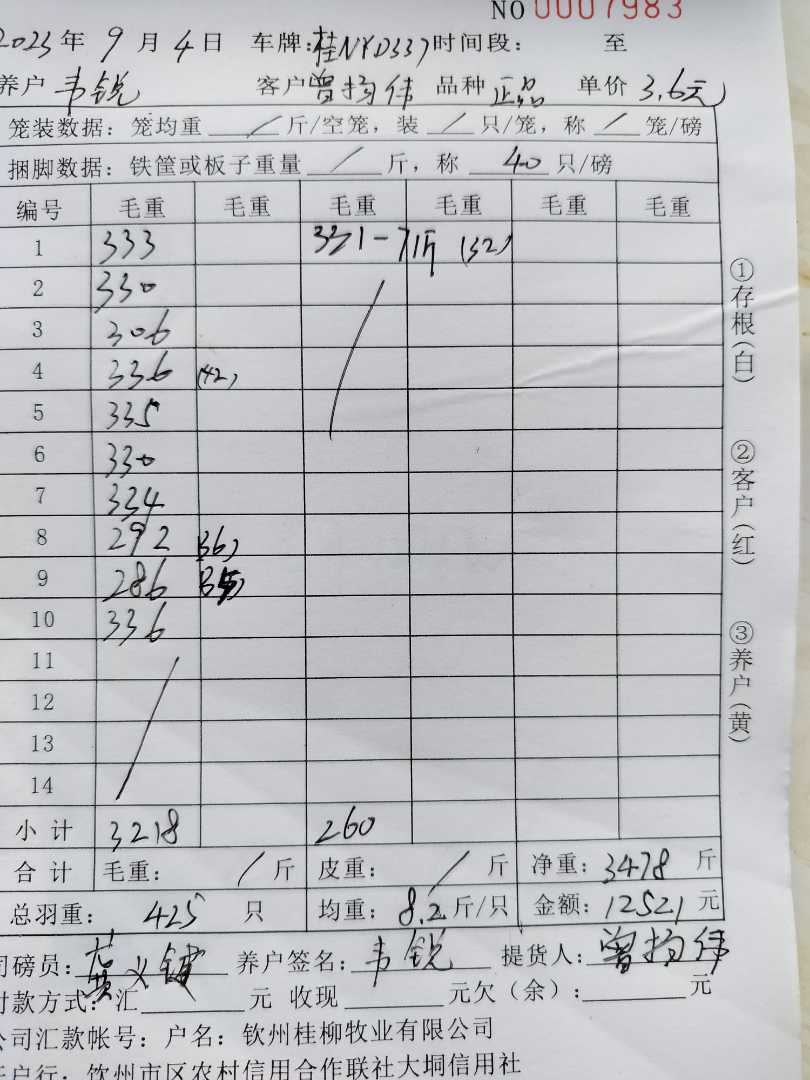 NO 0007983
2023年 9 月 4 日 车牌:桂NYD337时间段: 至
养户 韦锐 客户曾扬伟 品种 正品 单价 3.6元
笼装数据: 笼均重 / 斤/空笼, 装 / 只/笼, 称 / 笼/磅
捆脚数据: 铁筐或板子重量 / 斤, 称 40 只/磅
编号 毛重 毛重 毛重 毛重 毛重 毛重
1 333 331-71斤 (32)
2 330
3 306
4 336 (42)
5 335
6 330
7 334
8 292 (36)
9 286 (35)
10 336
11
12
13
14
小 计 3218 260
合 计 毛重: / 斤 皮重: / 斤 净重: 3478 斤
总羽重: 425 只 均重: 8.2 斤/只 金额: 12521 元
司磅员: 养户签名: 韦锐 提货人: 曾扬伟
付款方式: 汇 元 收现 元欠(余): 元
公司汇款帐号: 户名: 钦州桂柳牧业有限公司
开户行: 钦州市区农村信用合作联社大垌信用社
①存根(白)
②客户(红)
③养户(黄)